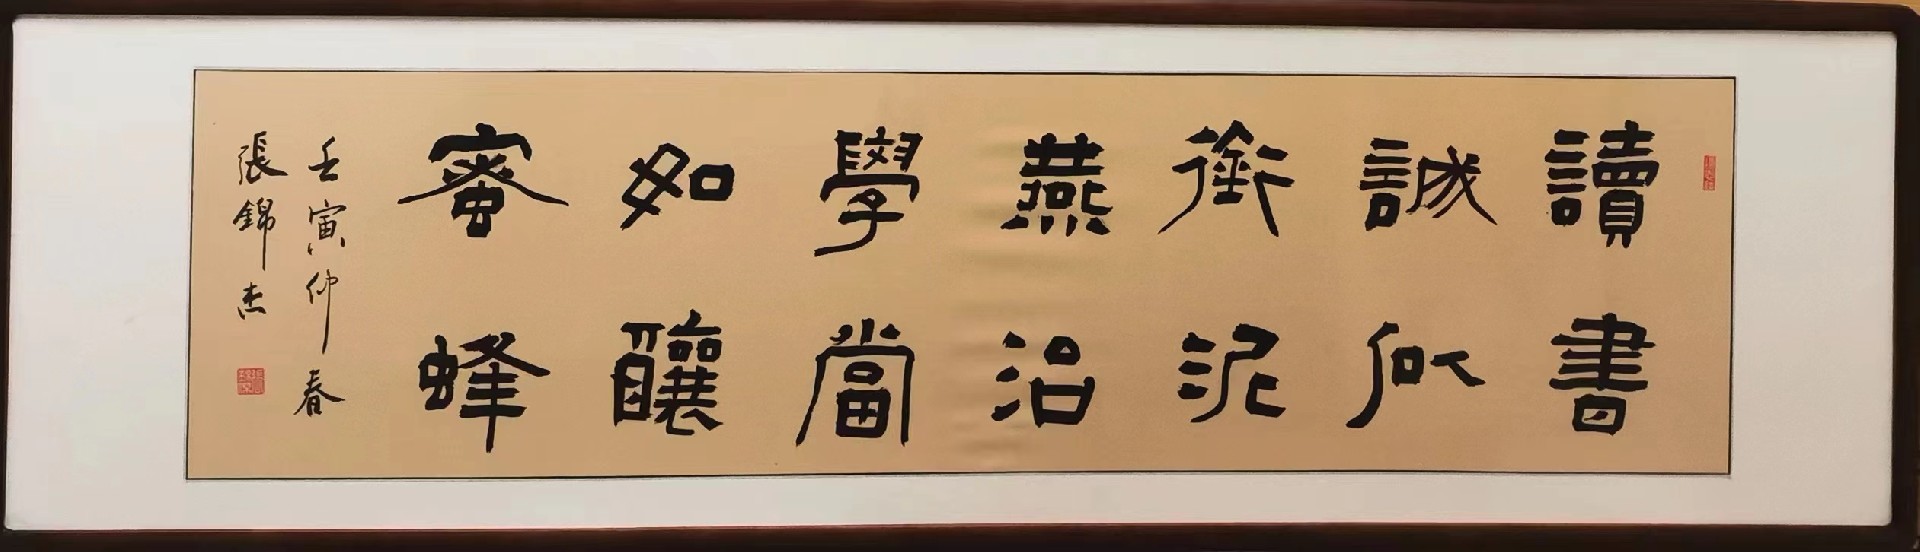 讀書
誠似
銜泥
燕治
學當
如釀
蜜蜂
壬寅仲春
張錦杰